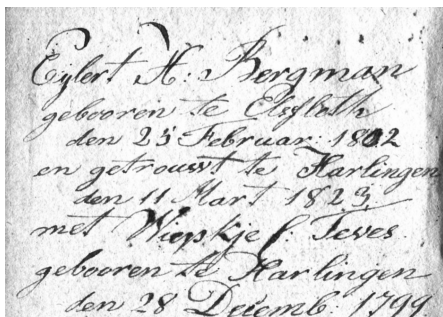 Eylert H: Bergman
gebooren te Elsfleth
den 25 Februar: 1802
en getrouwt te Harlingen
den 11 Mart 1823
met Wiepkje f: Teves
gebooren te Harlingen
den 28 Decemb: 1799